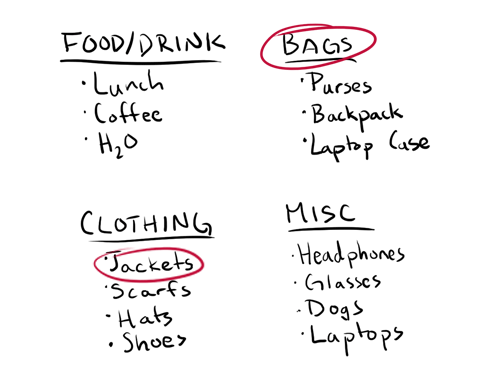 FOOD/DRINK
• Lunch
• Coffee
• H₂O
BAGS
• Purses
• Backpack
• Laptop Case
CLOTHING
• Jackets
• Scarfs
• Hats
• Shoes
MISC
• Headphones
• Glasses
• Dogs
• Laptops